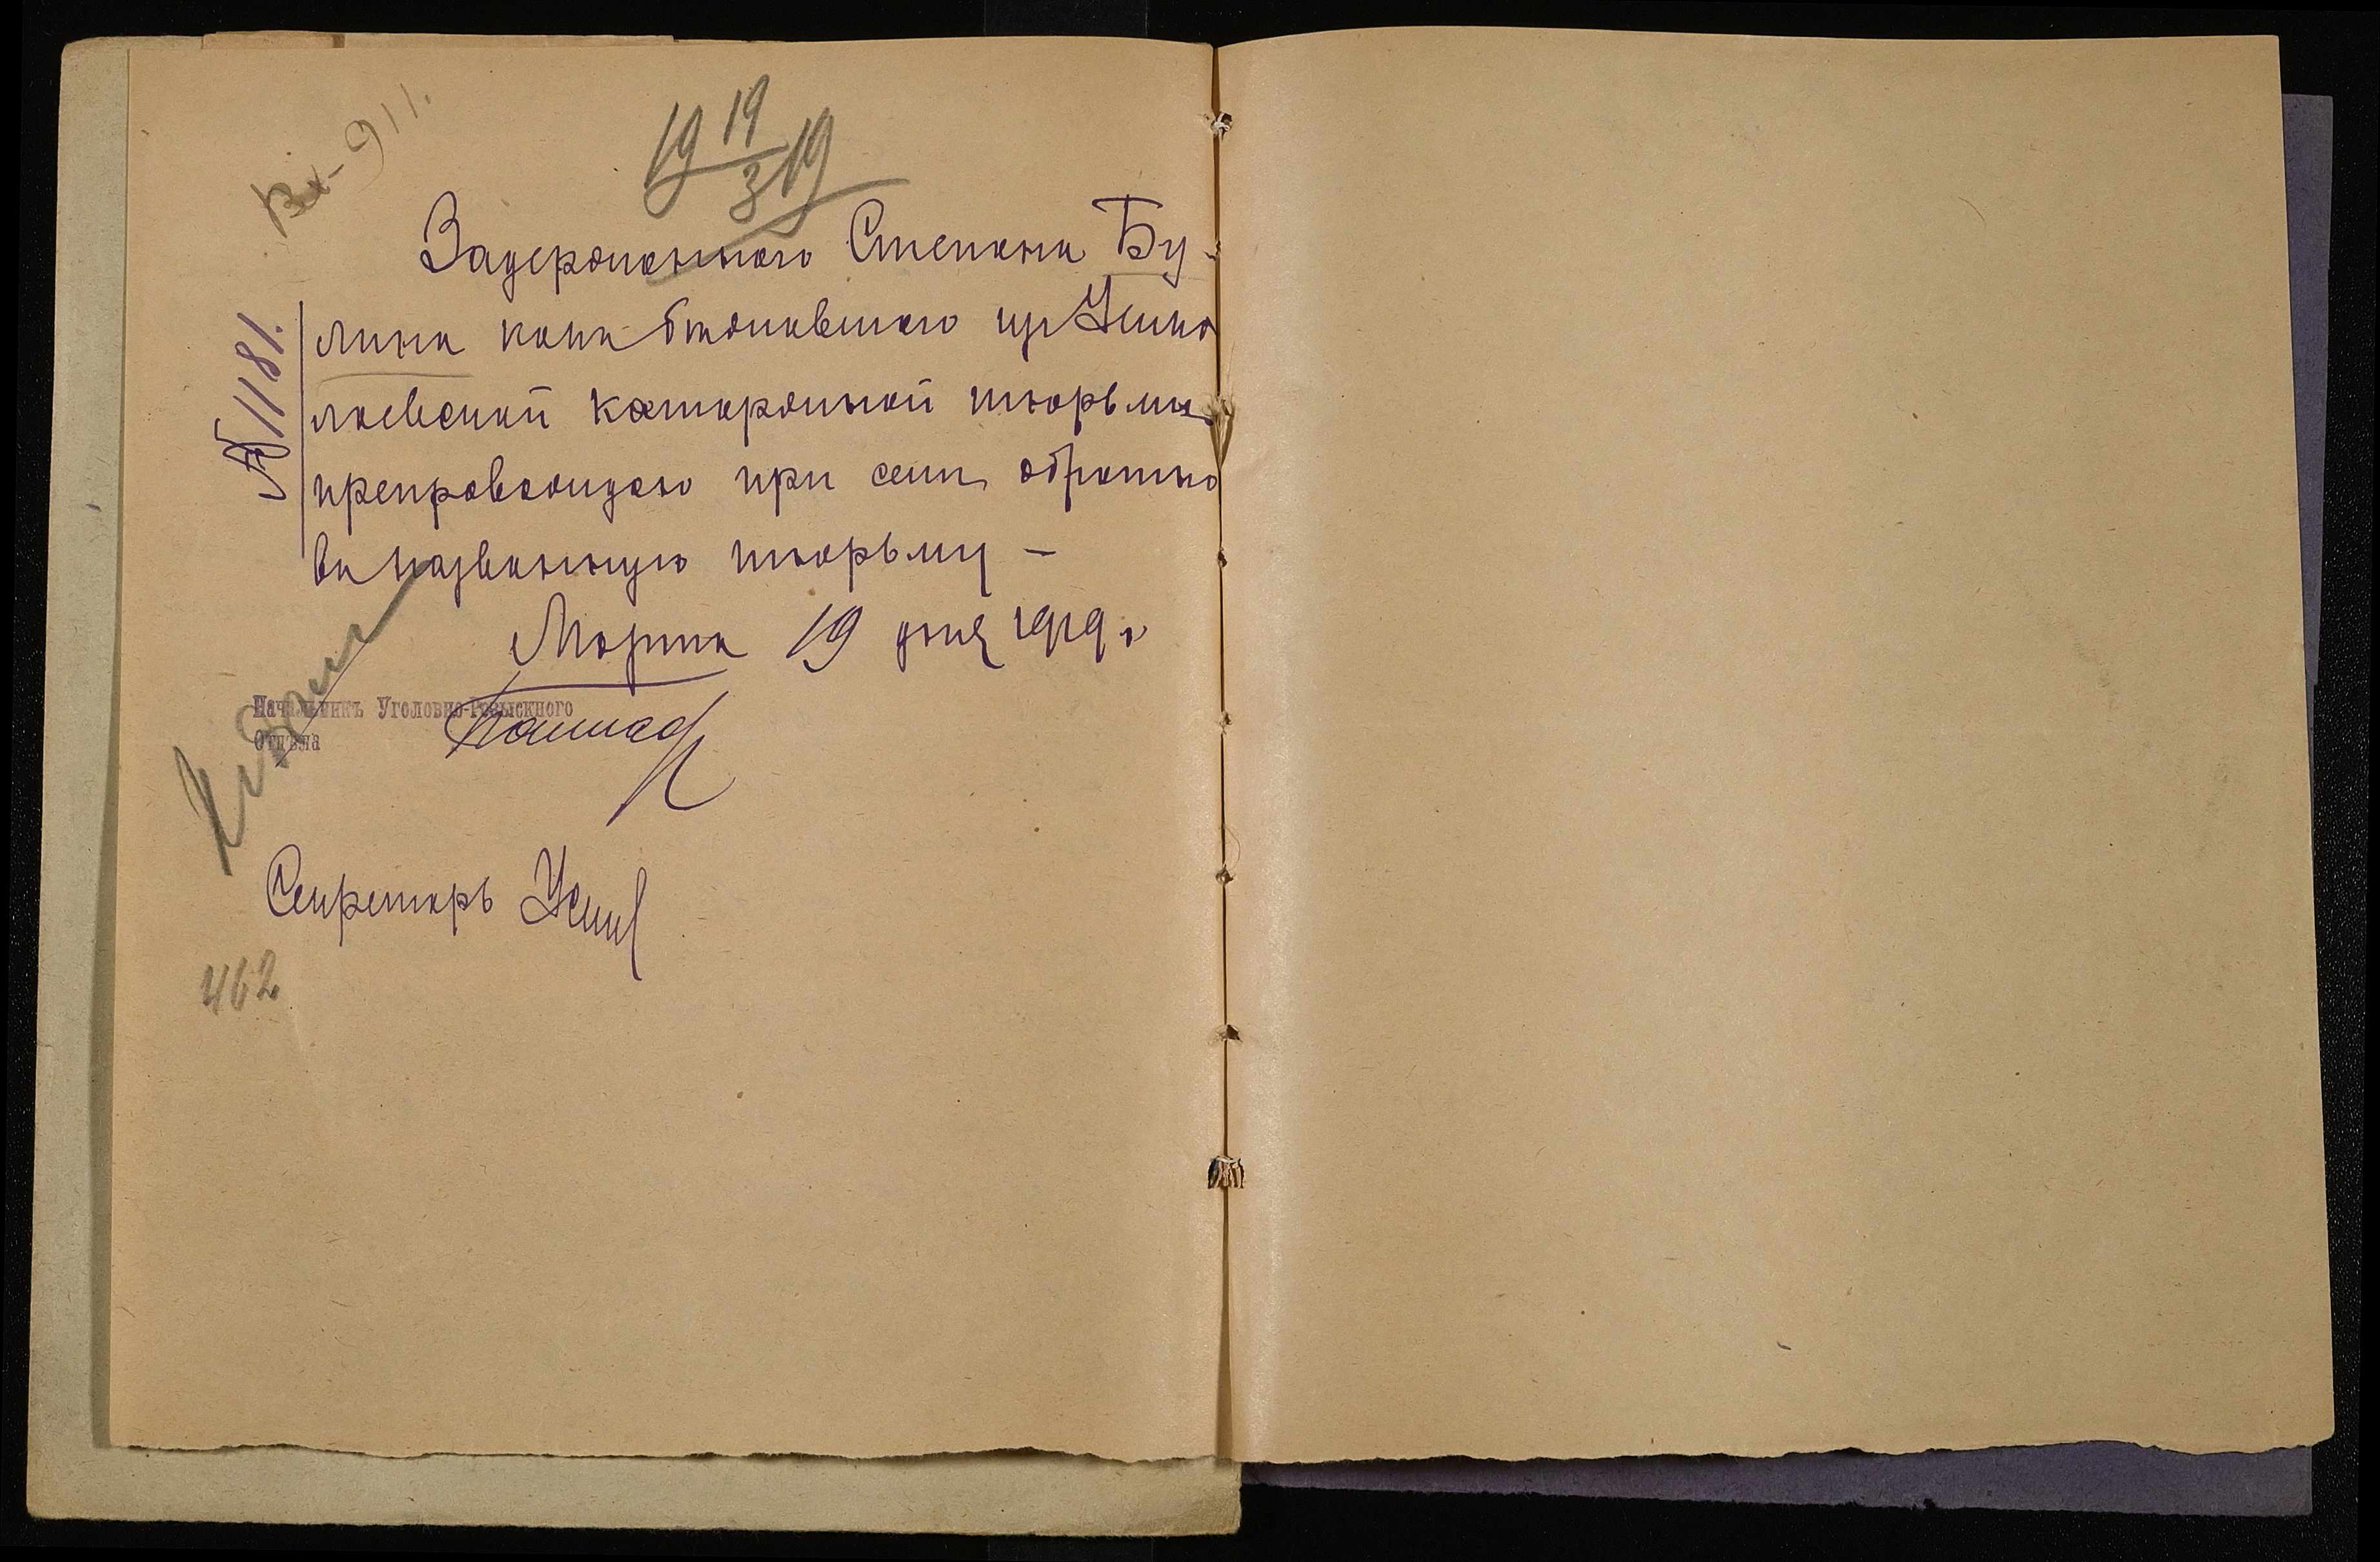 Вх-911.
19 19/3 19
Задержаннаго Степана Бу-
лина какъ бежавшаго изъ Усть
№ 1181.
каторжной тюрьмы
препровождаю при семъ обратно
въ названную тюрьму –
Марта 19 дня 1919 г
Начальникъ Уголовно-Розыскного
Отдѣла
Секретарь
462